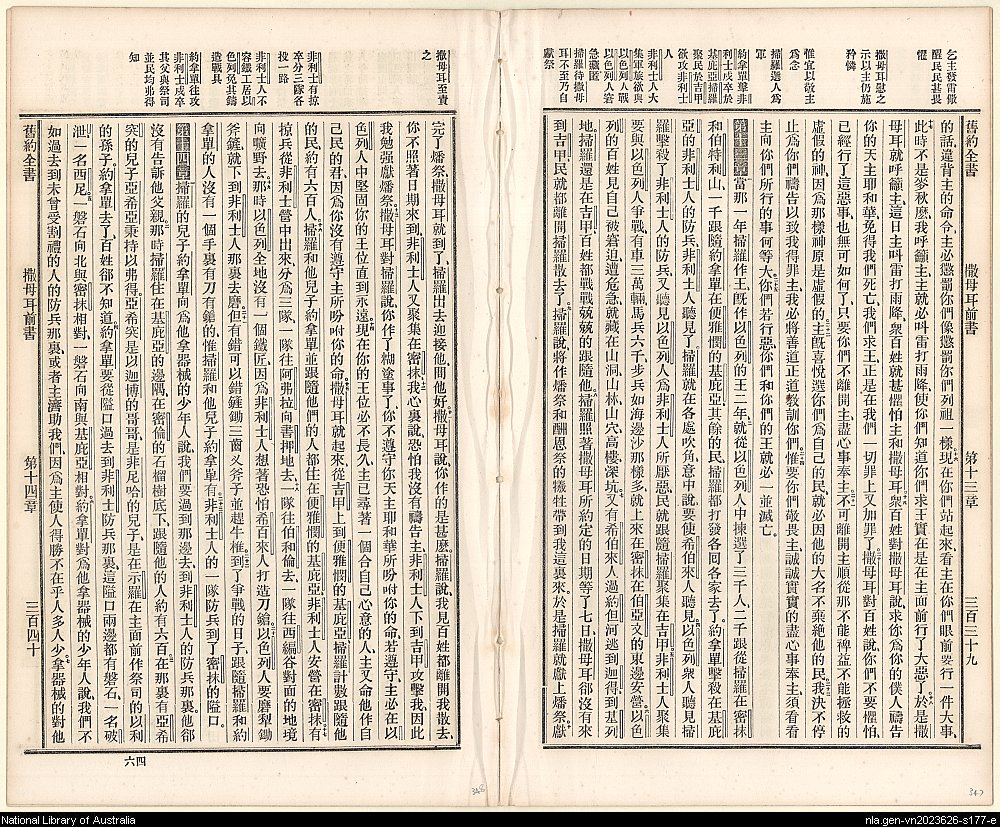 舊約全書 撒母耳前書 第十三章 三百三十九
乞主發雷霰
醒民民甚畏
懼
撒母耳慰之
示以主仍施
矜憐
惟宜以敬主
為念
掃羅選人為
軍
約拿單擊非
利士戍卒於
基庇亞掃羅
聚民於吉甲
欲攻非利士
人
非利士人大
集軍旅欲與
以色列人戰
以色列人窘
急藏匿
掃羅待撒母
耳不至乃自
獻祭
的話、違背主的命令、主必懲罰你們、像懲罰你們列祖一樣。現在你們站起來、看主在你們眼前要行一件大事、
此時不是麥秋麼、我呼籲主、主就必叫雷打雨降、使你們知道你們求王、實在是在主面前行了大惡了。於是撒
母耳就呼籲主、這日主叫雷打雨降、眾百姓就甚懼怕主和撒母耳。眾百姓對撒母耳說、求你為你的僕人禱告
你的天主耶和華、免得我們死亡、我們求王、正是在我們一切罪上又加罪了。撒母耳對百姓說、你們不要懼怕、
已經行了這惡事、也無可如何了、只要你們不離開主、盡心事奉主。不可離開主順從那不能裨益不能拯救的
虛假的神、因為那樣神原是虛假的。主旣喜悅選你們為自己的民、就必因他的大名不棄絕他的民。我決不停
止為你們禱告、以致我得罪主、我必將善道正道教訓你們。惟要你們敬畏主、誠誠實實的盡心事奉主、須看看
主向你們所行的事何等大。你們若行惡、你們和你們的王就必一並滅亡。
第十三章當那一年掃羅作王、旣作以色列的王二年、就從以色列人中揀選了三千人、二千跟從掃羅在密抹
和伯特利山、一千跟隨約拿單在便雅憫的基庇亞、其餘的民掃羅都打發各回各家去了。約拿單擊殺在基庇
亞的非利士人的防兵、非利士人聽見了。掃羅就在各處吹角、意中說、要使希伯來人聽見。以色列眾人聽見掃
羅擊殺了非利士人的防兵、又聽見以色列人為非利士人所厭惡、民就跟隨掃羅聚集在吉甲。非利士人聚集
要與以色列人爭戰、有車三萬輛、馬兵六千、步兵如海邊沙那樣多、就上來在密抹、在伯亞文的東邊安營。以色
列的百姓見自己被窘迫遭危急、就藏在山洞山林山穴高樓深坑。又有希伯來人過約但河逃到迦得到基列
地、掃羅還是在吉甲、百姓都戰戰兢兢的跟隨他。掃羅照著撒母耳所約定的日期等了七日、撒母耳卻沒有來
到吉甲、民就都離開掃羅散去了。掃羅說、將作燔祭和酬恩祭的犧牲帶到我這裏來。於是掃羅就獻上燔祭、獻
撒母耳至責
之
非利士有掠
卒分三隊各
投一路
非利士人不
容鐵工居以
色列免其鑄
造戰具
約拿單往攻
非利士戍卒
其父與祭司
並民均弗得
知
完了燔祭、撒母耳就到了、掃羅出去迎接他、問他好。撒母耳說、你作的是甚麼。掃羅說、我見百姓都離開我散去、
你不照著日期來到、非利士人又聚集在密抹。我心裏說、恐怕我沒有禱告主、非利士人下到吉甲攻擊我、因此
我勉强獻爐燔祭。撒母耳對掃羅說、你作了糊塗事了、你不遵守你天主耶和華所吩咐你的命、若遵守、主必在以
色列人中堅固你的王位直到永遠。現在你的王位必不長久、主已尋著一個合自己心意的人、主又命他作自
己民的君、因為你沒有遵守主所吩咐你的命。撒母耳就起來、從吉甲上到便雅憫的基庇亞、掃羅計數跟隨他
的民、約有六百人。掃羅和他兒子約拿單並跟隨他們的人、都住在便雅憫的基庇亞、非利士人安營在密抹。有
掠兵從非利士營中出來、分為三隊、一隊往阿弗拉向書押地去、一隊往伯和倫去、一隊往西編谷對面的地境
向曠野去。那時以色列全地沒有一個鐵匠、因為非利士人想著、恐怕希百來人打造刀鎗。以色列人要磨犁鋤
斧鏟、就下到非利士人那裏去磨。但有錯可以錯鏟鋤三齒义斧子並趕牛椎。到了爭戰的日子、跟隨掃羅和約
拿單的人沒有一個手裏有刀有鎗的、惟掃羅和他兒子約拿單有。非利士人的一隊防兵到了密抹的隘口。
第十四章掃羅的兒子約拿單向為他拿器械的少年人說、我們要過到那邊去、到非利士人的防兵那裏、他卻
沒有告訴他父親。那時掃羅住在基庇亞的邊隅、在密倫的石榴樹底下、跟隨他的人約有六百。在那裏有亞希
突的兒子亞希亞秉持以弗得、亞希突是以迦博的哥哥、是非尼哈的兒子、是在示羅在主面前作祭司的以利
的孫子。約拿單去了、百姓卻不知道。約拿單要從隘口過去到非利士防兵那裏、這隘口兩邊都有磐石、一名破
泄、一名西尼。一磐石向北與密抹相對、一磐石向南與基庇亞相對。約拿單對為他拿器械的少年人說、我們不
如過去到未曾受割禮的人的防兵那裏、或者主濟助我們、因為主使人得勝不在乎人多人少。拿器械的對他
舊約全書 撒母耳前書 第十四章 三百四十
四六
348
347
National Library of Australia
nla.gen-vn2023626-s177-e